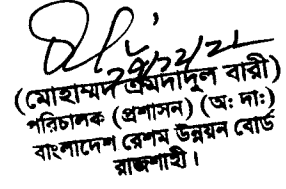 ২৭/১২/২১
(মোহাম্মদ এমদাদুল বারী)
পরিচালক (প্রশাসন) (অ: দা:)
বাংলাদেশ রেশম উন্নয়ন বোর্ড
রাজশাহী।